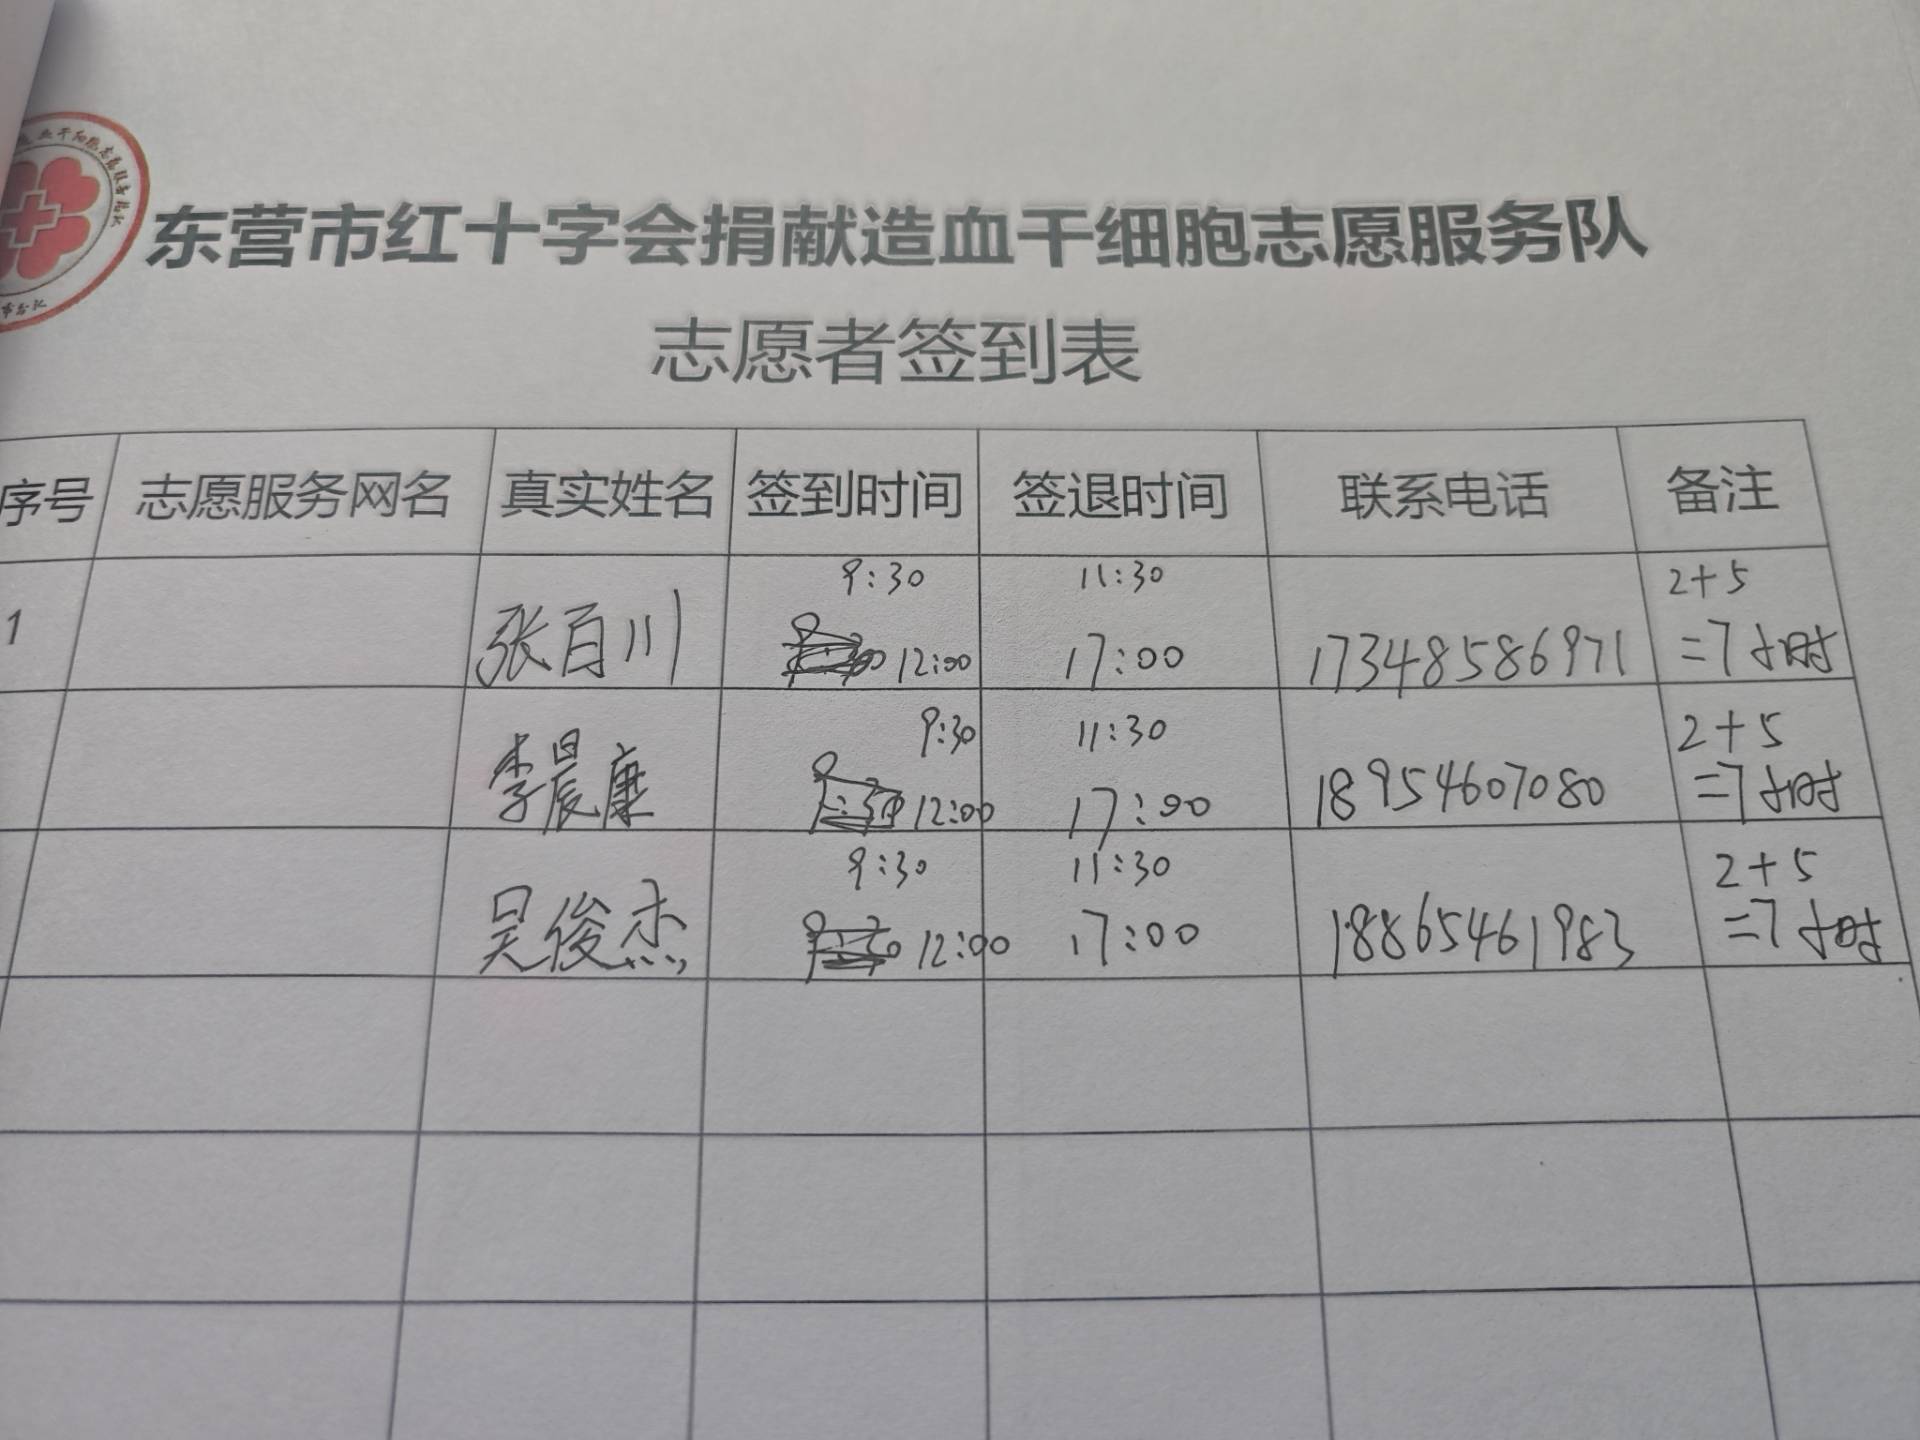 东营市红十字会捐献造血干细胞志愿服务队
志愿者签到表
序号 志愿服务网名 真实姓名 签到时间 签退时间 联系电话 备注
9:30 11:30 2+5
1 张百川 12:00 17:00 17348586971 =7小时
9:30 11:30 2+5
李晨康 12:00 17:00 18954607080 =7小时
9:30 11:30 2+5
吴俊杰 12:00 17:00 18865461983 =7小时